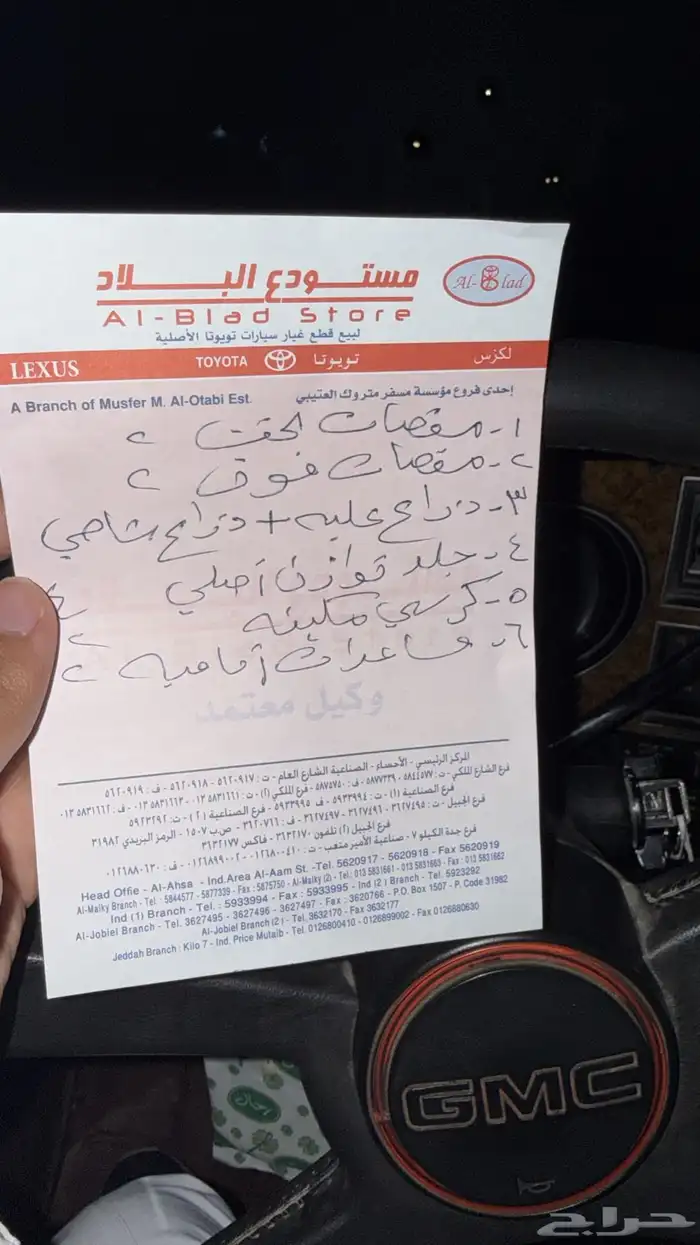 مستودع البلاد
Al-Blad
Al-Blad Store
لبيع قطع غيار سيارات تويوتا الأصلية
LEXUS TOYOTA تويوتا لكزس
A Branch of Musfer M. Al-Otabi Est. إحدى فروع مؤسسة مسفر متروك العتيبي
١- مقصات تحت ٢
٢- مقصات فوق ٢
٣- ذراع علبه + ذراع شاصي
٤- جلد توازن أصلي ٤
٥- كرسي مكينه ٢
٦- مساعدات أماميه ٢
وكيل معتمد
المركز الرئيسي - الأحساء - الصناعية الشارع العام - ت: ٥٦٢٠٩١٧ - ٥٦٢٠٩١٨ - ف: ٥٦٢٠٩١٩
فرع الشارع الملكي - ت: ٥٨٤٤٥٧٧ - ٥٨٧٧٣٣٩ - ف: ٥٨٧٥٧٥٠ - فرع الملكي (٢) - ت: ٠١٣٥٨٣١٦٦١ - ٠١٣٥٨٣١٦٦٣ - ف: ٠١٣٥٨٣١٦٦٢
فرع الصناعية (١) - ت: ٥٩٣٣٩٩٤ - ف: ٥٩٣٣٩٩٥ - فرع الصناعية (٢) - ت: ٥٩٢٣٢٩٢
فرع الجبيل - ت: ٣٦٢٧٤٩٥ - ٣٦٢٧٤٩٦ - ٣٦٢٧٤٩٧ - ف: ٣٦٢٠٧٦٦ - ص.ب ١٥٠٧ - الرمز البريدي ٣١٩٨٢
فرع الجبيل (٢) تلفون ٣٦٣٢١٧٠ - فاكس ٣٦٣٢١٧٧
فرع جدة الكيلو ٧ - صناعية الأمير متعب - ت: ٠١٢٦٨٠٠٤١٠ - ٠١٢٦٨٩٩٠٠٢ - ف: ٠١٢٦٨٨٠٦٣٠
Head Offie - Al-Ahsa - Ind.Area Al-Aam St. -Tel. 5620917 - 5620918 - Fax 5620919
Al-Malky Branch - Tel : 5844577 - 5877339 - Fax : 5875750 - Al-Malky (2) - Tel: 013 5831661 - 013 5831663 - Fax : 013 5831662
Ind (1) Branch - Tel. : 5933994 - Fax : 5933995 - Ind (2) Branch - Tel. 5923292
Al-Jobiel Branch - Tel. 3627495 - 3627496 - 3627497 - Fax : 3620766 - P.O. Box 1507 - P. Code 31982
Al-Jobiel Branch (2) - Tel. 3632170 - Fax 3632177
Jeddah Branch : Kilo 7 - Ind. Price Mutaib - Tel. 0126800410 - 0126899002 - Fax 0126880630
GMC
حراج